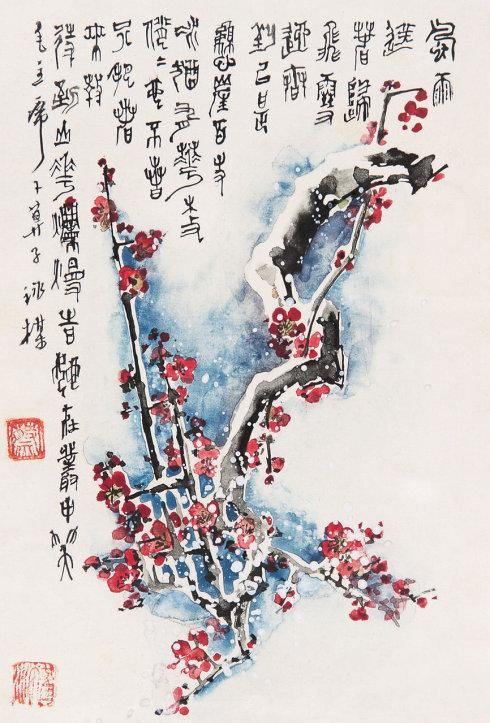 風雨
送
春歸
飛雪
迎春
到已是
懸崖百丈
冰猶有花枝
俏〻也不春
只把春
來報
待到山花爛漫時她在叢中笑
毛主席卜算子詠梅